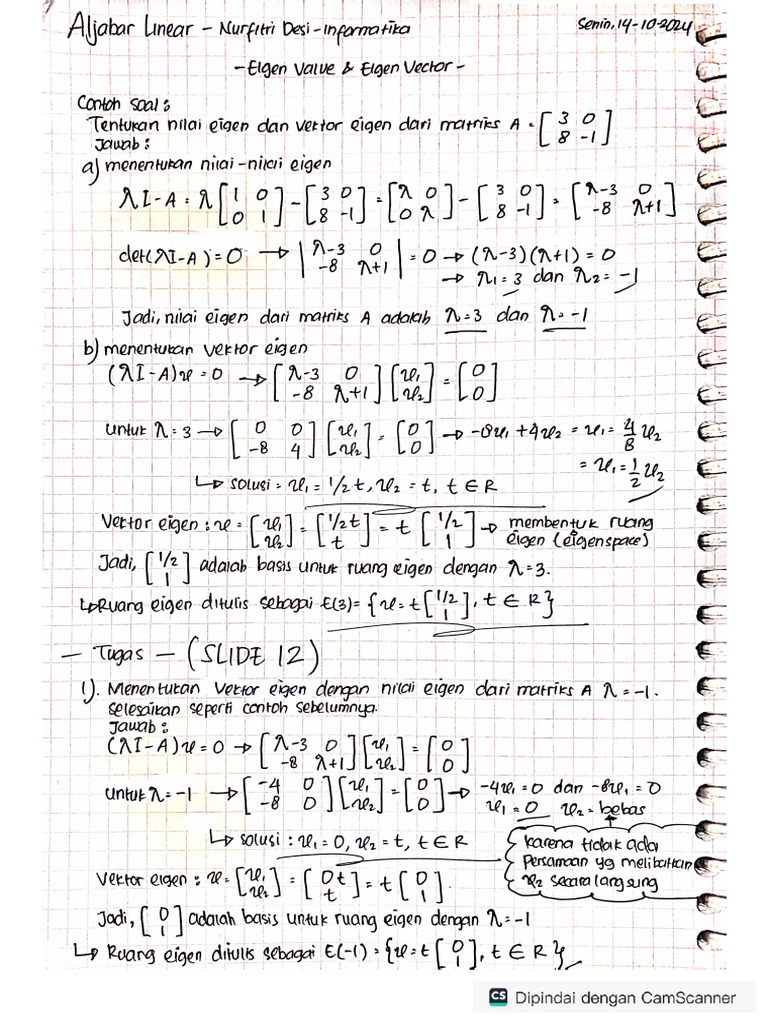 Aljabar Linear - Nurfitri Desi - Informatika
Senin, 14-10-2024
- Eigen Value & Eigen Vector -
Contoh soal :
Tentukan nilai eigen dan vektor eigen dari matriks A = [3 0; 8 -1]
Jawab :
a) menentukan nilai-nilai eigen
λI-A = λ[1 0; 0 1] - [3 0; 8 -1] = [λ 0; 0 λ] - [3 0; 8 -1] = [λ-3 0; -8 λ+1]
det(λI-A) = 0 → |λ-3 0; -8 λ+1| = 0 → (λ-3)(λ+1) = 0
→ λ1 = 3 dan λ2 = -1
Jadi, nilai eigen dari matriks A adalah λ=3 dan λ=-1
b) menentukan vektor eigen
(λI-A)v = 0 → [λ-3 0; -8 λ+1][v1; v2] = [0; 0]
untuk λ=3 → [0 0; -8 4][v1; v2] = [0; 0] → -8v1 + 4v2 = v1 = 4/8 v2
= v1 = 1/2 v2
↳ solusi = v1 = 1/2 t, v2 = t, t ∈ R
Vektor eigen : v = [v1; v2] = [1/2t; t] = t[1/2; 1] → membentuk ruang
eigen (eigenspace)
Jadi, [1/2; 1] adalah basis untuk ruang eigen dengan λ=3.
↳ Ruang eigen ditulis sebagai E(3) = {v = t[1/2; 1], t ∈ R}
- Tugas - (SLIDE 12)
1). Menentukan Vektor eigen dengan nilai eigen dari matriks A λ = -1.
Selesaikan seperti contoh sebelumnya.
Jawab :
(λI-A)v = 0 → [λ-3 0; -8 λ+1][v1; v2] = [0; 0]
untuk λ=-1 → [-4 0; -8 0][v1; v2] = [0; 0] → -4v1 = 0 dan -8v1 = 0
v1 = 0 v2 = bebas
↳ solusi : v1 = 0, v2 = t, t ∈ R
karena tidak ada
Persamaan yg melibatkan
v2 secara langsung
Vektor eigen : v = [v1; v2] = [0t; t] = t[0; 1].
Jadi, [0; 1] adalah basis untuk ruang eigen dengan λ=-1
↳ Ruang eigen ditulis sebagai E(-1) = {v = t[0; 1], t ∈ R}
CS Dipindai dengan CamScanner